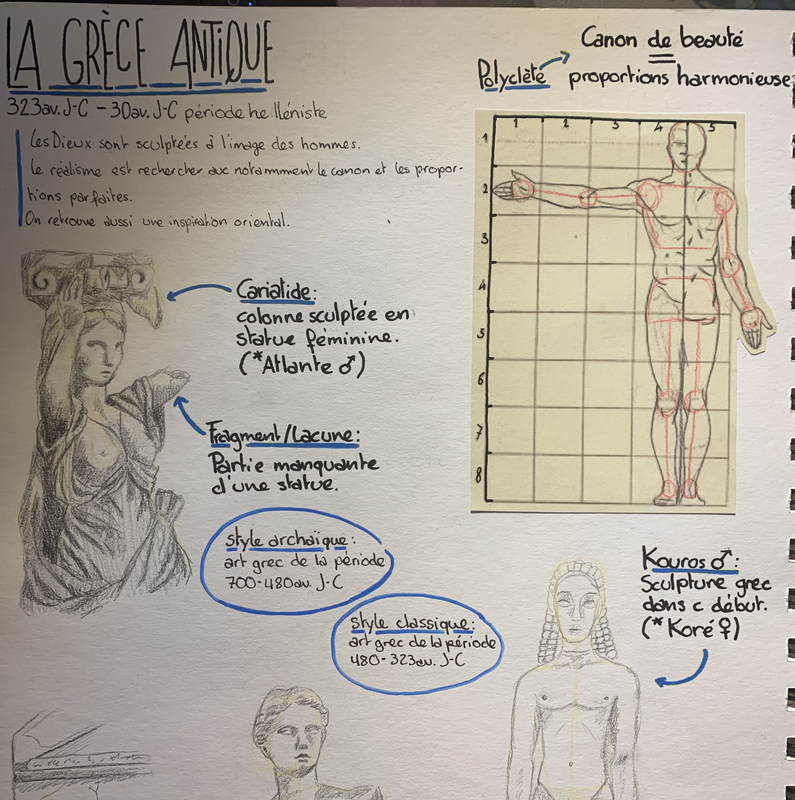 LA GRÈCE ANTIQUE
323av. J-C - 30av. J-C période helléniste
Les Dieux sont sculptées à l'image des hommes.
Le réalisme est rechercher avc notamment le canon et les propor-
tions parfaites.
On retrouve aussi une inspiration oriental.
Canon de beauté
Polyclète proportions harmonieuse
1 2 3 4 5
1
2
3
4
5
6
7
8
Cariatide:
colonne sculptée en
statue féminine.
(*Atlante ♂)
Fragment/Lacune:
Partie manquante
d'une statue.
style archaïque:
art grec de la période
700-480av. J-C
style classique:
art grec de la période
480-323av. J-C
Kouros ♂:
Sculpture grec
dans c début.
(*Koré ♀)